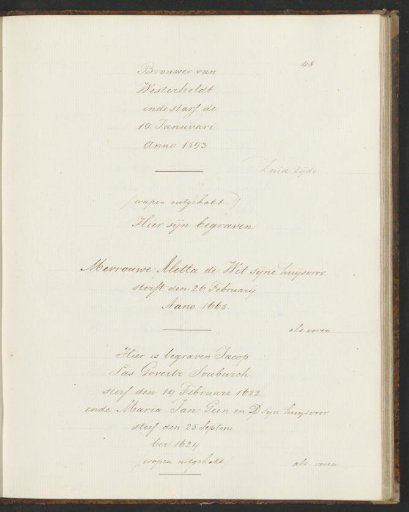 48
Brouwer van
Westerheldt
ende starf de
19 Januvari
Anno 1593
Zuid zyde
(wapen uitgehakt)
Hier sijn begraven
Mevrouwe Aletta de Wit syne huysvror
sterft den 26 February
Anno 1662
als voren
Hier is begraven Jacop
Govertz
sterf den 19 Februare 1622
ende Maria Jan en D syn huysvror
sterf den 25 Septem
ber 1624
(wapen uitgehakt
als voren